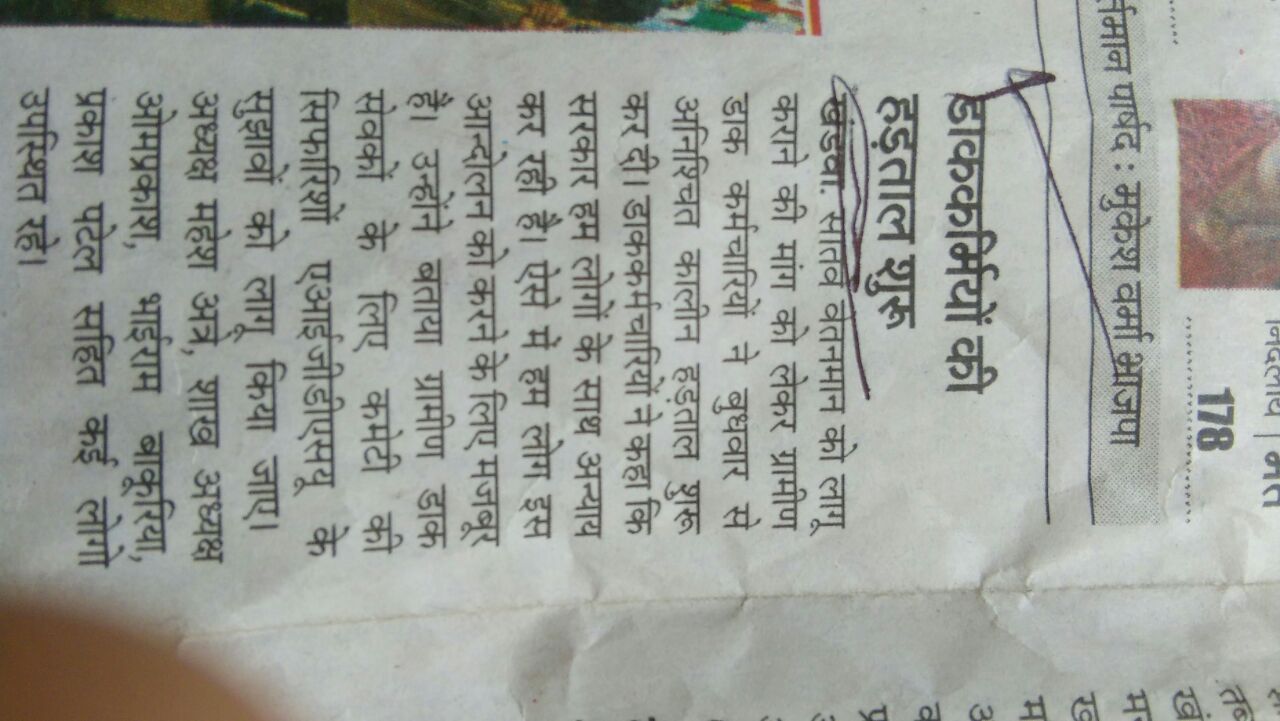 पार्षद : मुकेश वर्मा भाजपा
178
डाककर्मियों की
हड़ताल शुरू
खंडवा. सातवें वेतनमान को लागू
कराने की मांग को लेकर ग्रामीण
डाक कर्मचारियों ने बुधवार से
अनिश्चित कालीन हड़ताल शुरू
कर दी। डाककर्मचारियों ने कहा कि
सरकार हम लोगों के साथ अन्याय
कर रही है। ऐसे में हम लोग इस
आन्दोलन को करने के लिए मजबूर
है। उन्होंने बताया ग्रामीण डाक
सेवकों के लिए कमेटी की
सिफारिशों एआईजीडीएसयू के
सुझावों को लागू किया जाए।
अध्यक्ष महेश अत्रे, शाख अध्यक्ष
ओमप्रकाश, भाईराम बाकूरिया,
प्रकाश पटेल सहित कई लोगो
उपस्थित रहे।